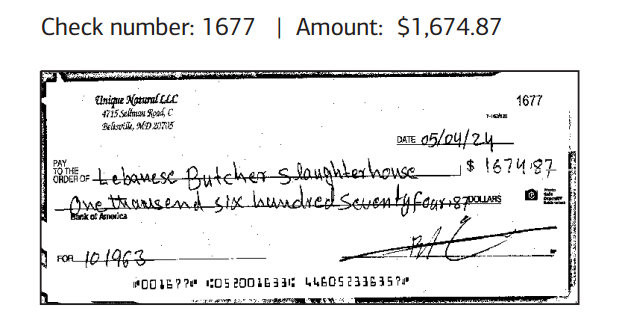 Check number: 1677 | Amount: $1,674.87
Unique Natural LLC
1677
4715 Sellman Road, C
Beltsville, MD 20705
DATE 05/04/24
PAY
TO THE
ORDER OF Lebanese Butcher Slaughterhouse $ 1674.87
One thousend six hundred seventy four + 87 DOLLARS
Bank of America
FOR 101963
⑈001677⑈ ⑆052001633⑆ 446052336357⑈